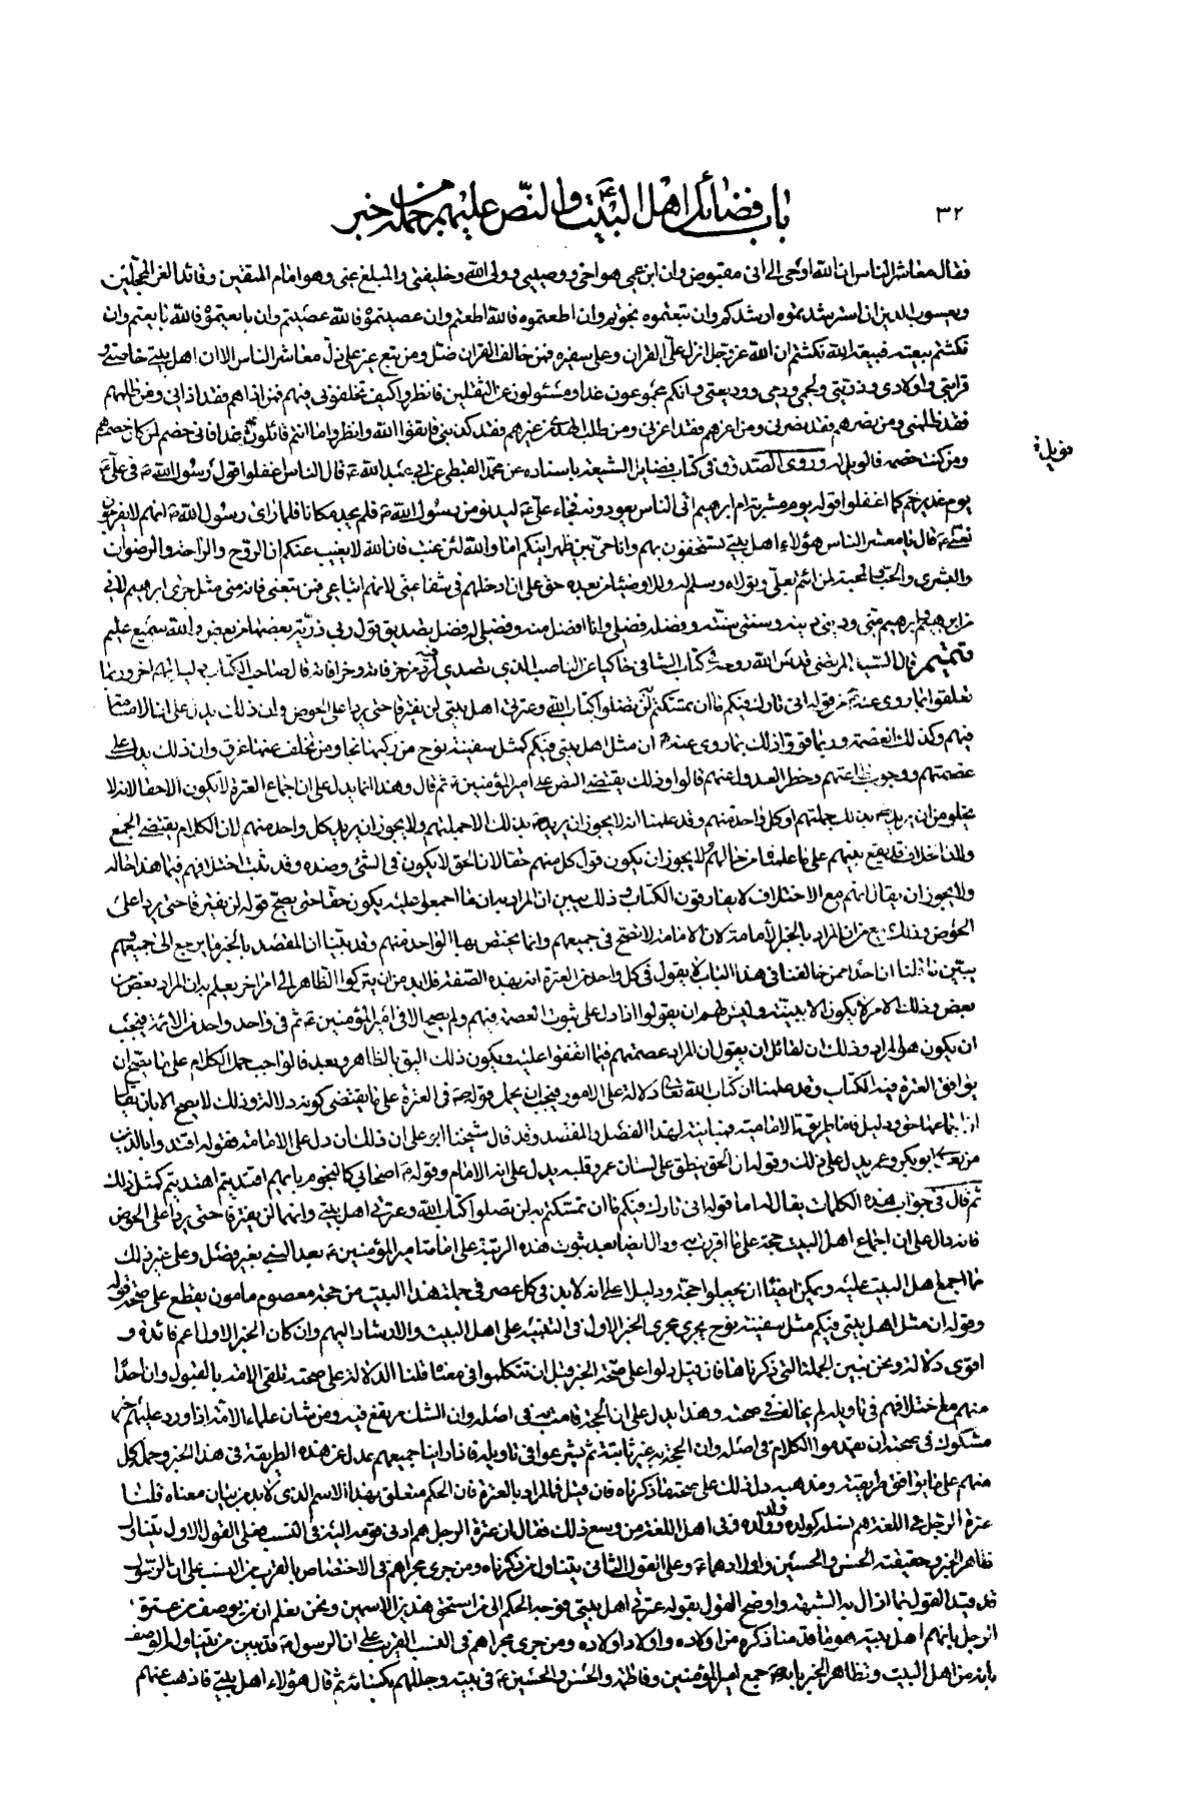 ٣٢
باب فضائل اهل البيت ع والنص عليهم من جملة خبر
فقال معاشر الناس ان الله اوحى الى انى مقبوض وان ابن عمى هو اخى ووصيي وولى الله وخليفتى والمبلغ عنى وهو امام المتقين وقائد الغر المحجلين
ويعسوب الدين ان استرشدتموه ارشدكم وان تبعتموه نجوتم وان اطعتموه فالله اطعتم وان عصيتموه فالله عصيتم وان بايعتموه فالله بايعتم وان
نكثتم بيعته فبيعة الله نكثتم ان الله عز وجل انزل على القران وعلى سفيره فمن خالف القران ضل ومن تبع غير على ذل معاشر الناس الا ان اهل بيتى خاصتى و
قرابتى واولادى وذريتى ولحمى ودمى ووديعتى وانكم مجموعون غدا ومسئولون عن الثقلين فانظروا كيف تخلفونى فيهم فمن اذاهم فقد اذانى ومن ظلمهم
فقد ظلمنى ومن نصرهم فقد نصرنى ومن اعزهم فقد اعزنى ومن طلب الهدى من غيرهم فقد كذبنى فاتقوا الله وانظروا ما انتم قائلون غدا فانى خصم لمن كان خصمهم
ومن كنت خصمه فالويل له وروى الصدوق فى كتاب فضايل الشيعة باسناده عن محمد القبطى عن ابى عبد الله ع قال الناس اغفلوا قول رسول الله ص فى على ع
يوم غدير خم كما اغفلوا قوله يوم مشربة ام ابرهيم اتى الناس يعودونه فجاء على ع ليدنو من رسول الله ص فلم يجد مكانا فلما راى رسول الله ص انهم لا يفرجون
لعلى ع قال يا معشر الناس هؤلاء اهل بيتى تستخفون بهم وانا حى بين ظهرانيكم اما والله لئن غبت فان الله لا يغيب عنكم ان الروح والراحة والرضوان
والبشرى والحب والمحبة لمن ائتم بعلى وتولاه وسلم له وللاوصياء من بعده حق على ان ادخلهم فى شفاعتى لانهم اتباعى فمن تبعنى فانه منى مثل جرى ابرهيم لانى
من ابرهيم وابرهيم منى ودينى دينه وسنتى سنته وفضله فضلى وانا افضل منه وفضلى له فضل تصديق قول ربى ذرية بعضها من بعض والله سميع عليم
تتميم قال السيد المرتضى قدس الله روحه فى كتاب الشافى حاكيا عن الناصب الذى تصدى فيه لرد
تعلقوا بما روى عنه ص من قوله انى تارك فيكم ما ان تمسكتم به لن تضلوا كتاب الله وعترتى اهل بيتى لن يفترقا حتى يردا على الحوض وان ذلك يدل على ان الامامة
فيهم وكذلك العصمة وربما قووا ذلك بما روى عنه ص ان مثل اهل بيتى فيكم كمثل سفينة نوح من ركبها نجا ومن تخلف عنها غرق وان ذلك يدل على
عصمتهم ووجوب طاعتهم وحظر العدول عنهم قالوا وذلك يقتضى النص على امير المؤمنين ع ثم قال وهذا انما يدل على ان اجماع العترة لا يكون الا حقا لانه لا
يخلو من ان يريد ص بذلك جملتهم او كل واحد منهم وقد علمنا انه لا يجوز ان يريد بذلك الا جملتهم ولا يجوز ان يريد كل واحد منهم لان الكلام يقتضى الجمع
ولان الخلاف قد يقع بينهم على ما علمناه من حالهم ولا يجوز ان يكون قول كل منهم حقا لان الحق لا يكون فى الشئ وضده وقد ثبت اختلافهم فيما هذا حاله
ولا يجوز ان يقال انهم مع الاختلاف لا يفارقون الكتاب وذلك يبين ان المراد به ان ما اجمعوا عليه يكون حقا حتى يصح قوله لن يفترقا حتى يردا على
الحوض وذلك يمنع من ان المراد بالخبر الامامة لان الامامة لا تصح فى جميعهم وانما يختص بها الواحد منهم وقد بينا ان المقصد بالخبر ما يرجع الى جميعهم
يبين ما قلنا ان احدا ممن خالفنا فى هذا الباب لا يقول فى كل واحد من العترة انه بهذه الصفة فلا بد من ان يتركوا الظاهر الى امر اخر يعلم به ان المراد بعض من
بعض وذلك الامر لا يكون الا ببينة وليس لهم ان يقولوا اذا دل على ثبوت العصمة فيهم ولم يصح الا فى امير المؤمنين ع ثم فى واحد واحد من الائمة فيجب
ان يكون هو المراد وذلك ان لقائل ان يقول ان المراد عصمتهم فيما اتفقوا عليه ويكون ذلك اليق بالظاهر وبعد فالواجب حمل الكلام على ما يصح ان
يوافق العترة فيه الكتاب وقد علمنا ان كتاب الله تعالى دلالة على الامور فيجب ان يحمل قوله ص فى العترة على ما يقتضى كونه دلالة وذلك لا يصح الا بان يقال
ان اجماعها حق ودليل فاما طريقة الامامية فمباينة لهذا الفصل والمقصد وقد قال شيخنا ابو على ان ذلك ان دل على الامامة فقوله اقتدوا بالذين
من بعدى ابوبكر وعمر يدل على ذلك وقوله ان الحق ينطق على لسان عمر وقلبه يدل على انه الامام وقوله ص اصحابى كالنجوم بايهم اقتديتم اهتديتم كمثل ذلك
ثم قال فى جواب هذه الكلمات يقال له اما قوله انى تارك فيكم ما ان تمسكتم به لن تضلوا كتاب الله وعترتى اهل بيتى وانهما لن يفترقا حتى يردا على الحوض
فانه دال على ان اجماع اهل البيت حجة على ما اقررت به ودال ايضا بعد ثبوت هذه الرتبة على امامة امير المؤمنين ع بعد النبى بغير فصل وعلى غير ذلك
مما اجمع اهل البيت عليه ويمكن ايضا ان يجعلوا حجة ودليلا على انه لا بد فى كل عصر فى جملة هذا البيت من حجة معصوم مامون يقطع على صحة قوله
وقوله ان مثل اهل بيتى فيكم مثل سفينة نوح يجرى مجرى الخبر الاول فى التنبيه على اهل البيت والارشاد اليهم وان كان الخبر الاول اعم فائدة و
اقوى دلالة ونحن نبين الجملة التى ذكرناها فان قيل دلوا على صحة الخبر قبل ان تتكلموا فى معناه قلنا الدلالة على صحته تلقى الامة بالقبول وان احدا
منهم مع اختلافهم فى تاويله لم يخالف فى صحته وهذا يدل على ان الحجة قامت به فى اصله وان الشك مرتفع فيه ومن شان علماء الامة اذا ورد عليهم خبر
مشكوك فى صحته ان يقدموا الكلام فى اصله وان الحجة به غير ثابتة ثم يشرعوا فى تاويله فاذا راينا جميعهم عدل عن هذه الطريقة فى هذا الخبر وحمله كل
منهم على ما يوافق طريقته ومذهبه دل ذلك على صحة ما ذكرناه فان قيل فما المراد بالعترة فان الحكم متعلق بهذا الاسم الذى لا بد من بيان معناه قلنا
عترة الرجل فى اللغة هم نسله كولده وولد ولده وفى اهل اللغة من وسع ذلك فقال ان عترة الرجل هم ادنى قومه اليه فى النسب فعلى القول الاول يتناول
ظاهر الخبر وحقيقته الحسن والحسين واولادهما ع وعلى القول الثانى يتناول من ذكرناه ومن جرى مجراهم فى الاختصاص بالقرب من النسب على ان الرسول
قد قيد القول بما ازال به الشبهة واوضح القول بقوله عترتى اهل بيتى فوجه الحكم الى من استحق هذين الاسمين ونحن نعلم ان من يوصف من عترة
الرجل بانهم اهل بيته هو ما قدمنا ذكره من اولاده واولاد اولاده ومن جرى مجراهم فى النسب القريب على ان الرسول ص قد بين من يتناوله الوصف
بانه من اهل البيت وتظاهر الخبر بانه ص جمع امير المؤمنين وفاطمة والحسن والحسين ع فى بيته وجللهم بكسائه ثم قال هؤلاء اهل بيتى فاذهب عنهم